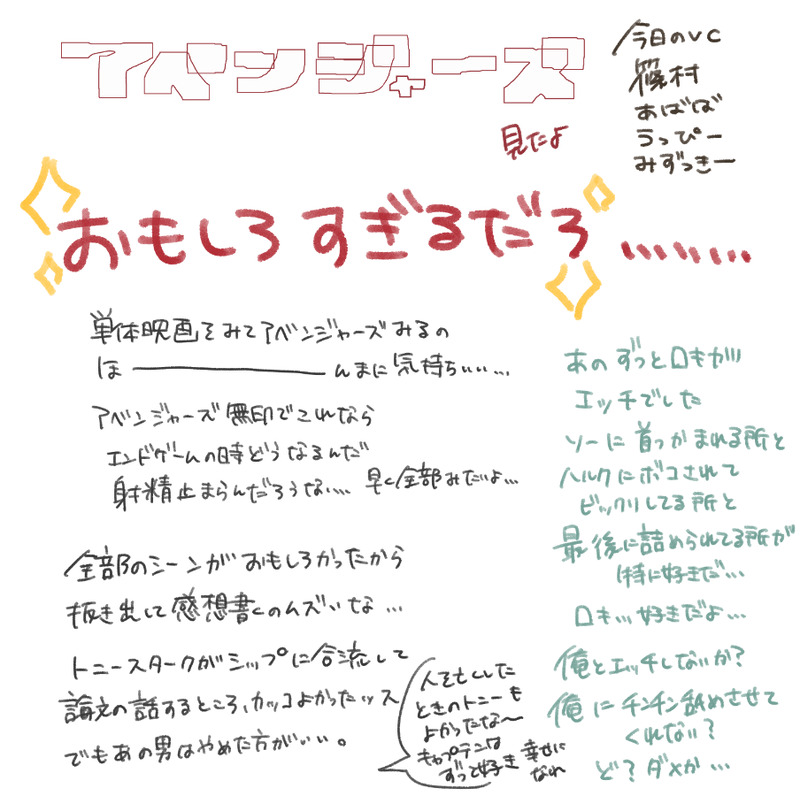 アベンジャーズ
見たよ
今日のVC
篠村
あばば
うっぴー
みずっきー
おもしろすぎるだろ……
単体映画をみてアベンジャーズみるの
ほ――――んまに気持ちいい…
アベンジャーズ無印でこれなら
エンドゲームの時どうなるんだ
射精止まらんだろうな… 早く全部みたいよ…
全部のシーンがおもしろかったから
抜き出して感想書くのムズいな…
トニースタークがシップに合流して
論文の話するところ、カッコよかったッス
でもあの男はやめた方がいい。
人を亡くした
ときのトニーも
よかったな〜
キャプテンは
ずっと好き 幸せに
なれ
あのずっとロキが
エッチでした
ソーに首っかまれる所と
ハルクにボコされて
ビックリしてる所と
最後に詰められてる所が
特に好きだ…
ロキ…好きだよ…
俺とエッチしないか?
俺にチンチン舐めさせて
くれない?
ど?ダメか…